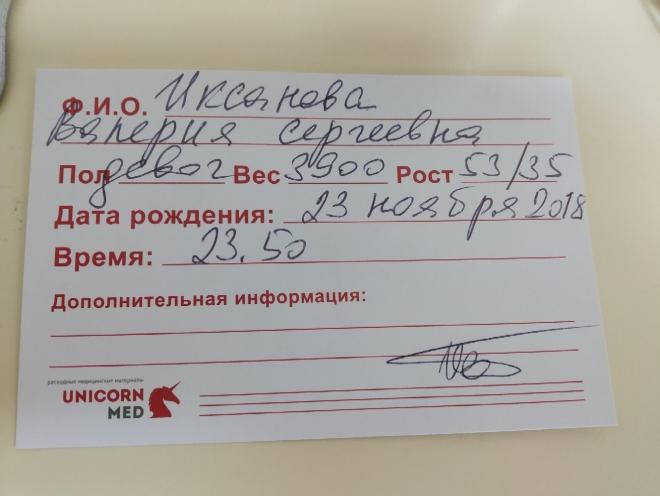 Ф.И.О. Иксанова
Валерия Сергеевна
Пол девоч Вес 3900 Рост 53/35
Дата рождения: 23 ноября 2018
Время: 23.50
Дополнительная информация:
расходные медицинские материалы
UNICORN
MED